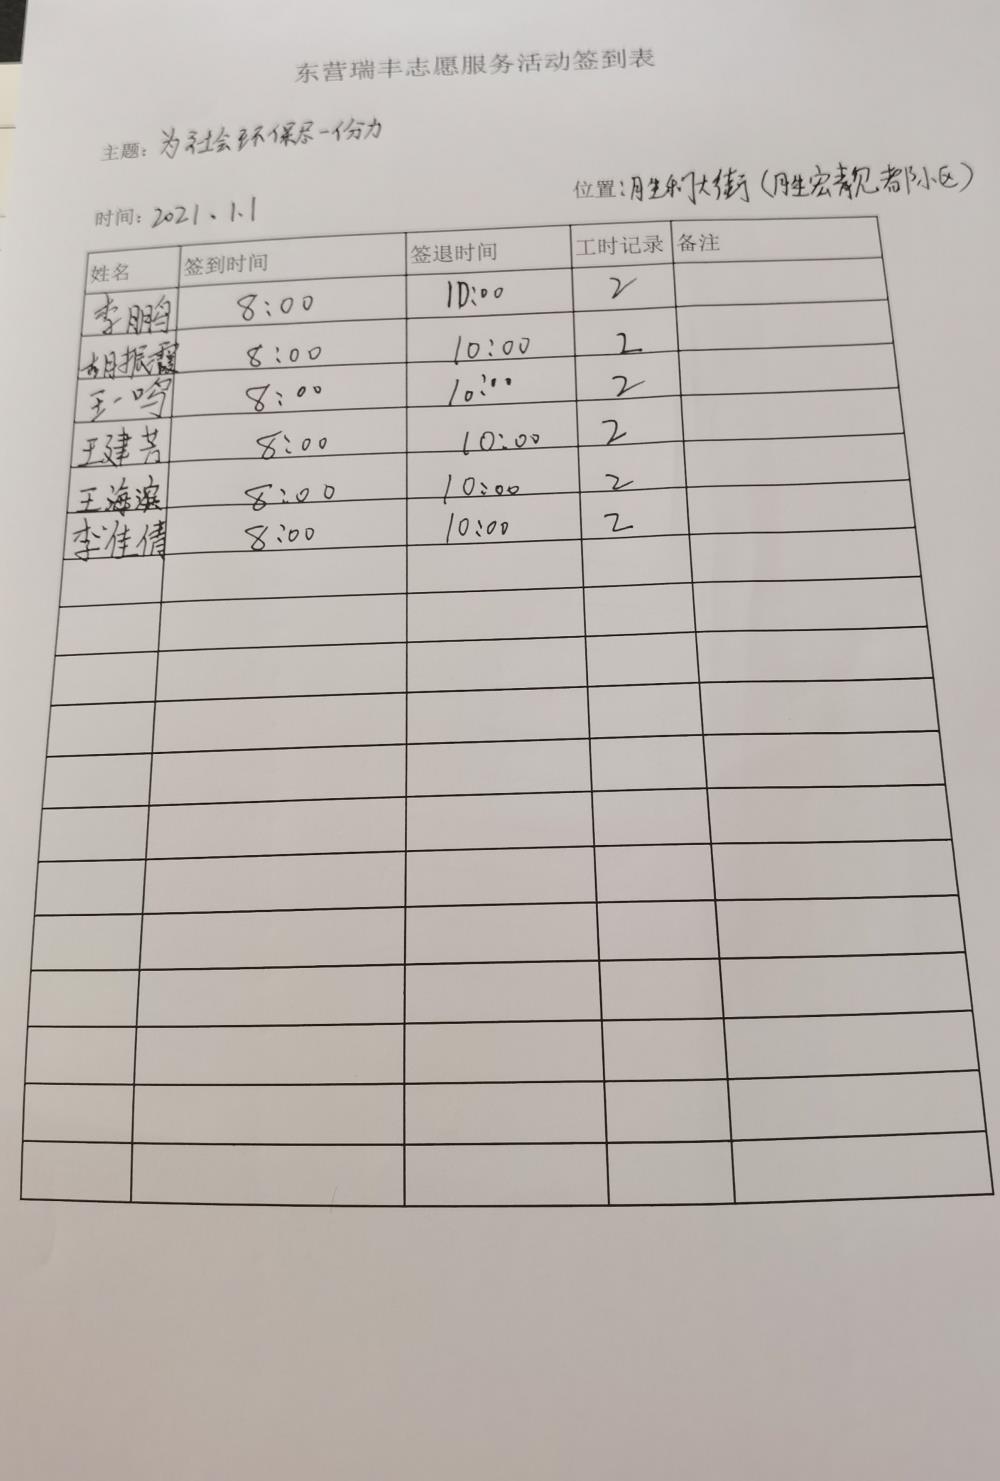 东营瑞丰志愿服务活动签到表
主题：为社会环保尽一份力
位置：胜利大街（胜宏靓都小区）
时间：2021.1.1
姓名 签到时间 签退时间 工时记录 备注
李鹏 8:00 10:00 2
胡振霞 8:00 10:00 2
王一鸣 8:00 10:00 2
王建芳 8:00 10:00 2
王海滨 8:00 10:00 2
李佳倩 8:00 10:00 2